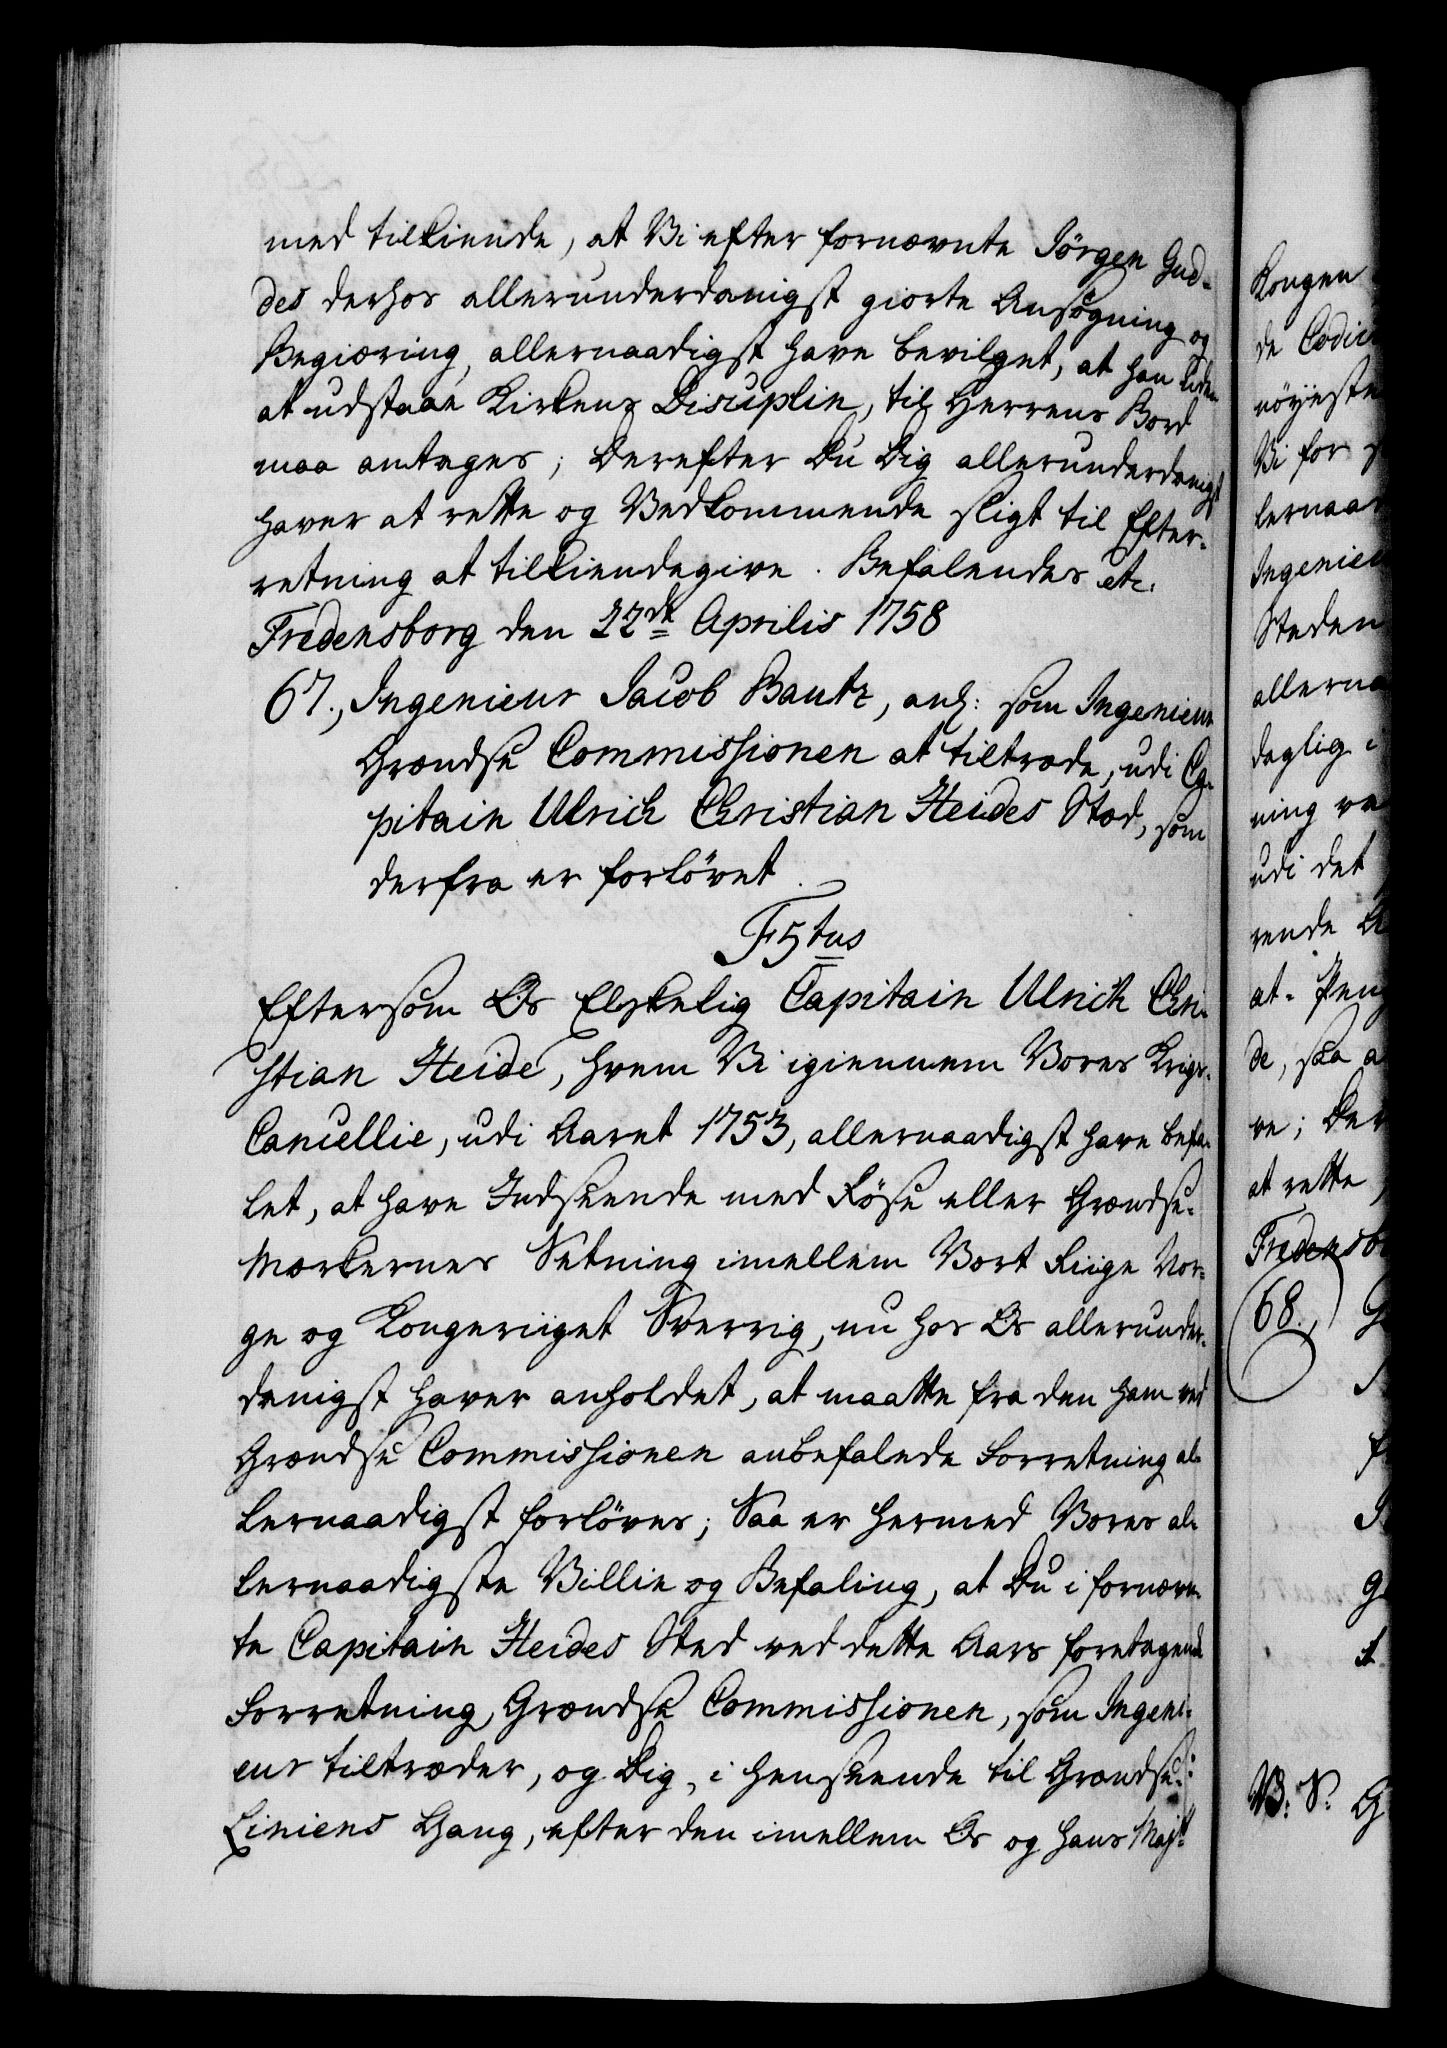 med tilkiende, at Vi efter fornævnte Jörgen Gud-
des derhos allerunderdanigst giorte Ansögning og
Begiæring, allernaadigst have bevilget, at han uden
at udstaae Kirkens Disciplin, til Herrens Bord
maa antages; Derefter Du Dig allerunderdanigst
haver at rette og Vedkommende sligt til Efter-
retning at tilkiendegive. Befalendes etc.
Fredensborg den 22de Aprilis 1758
67., Ingenieur Jacob Bautz, anl: som Ingenieur
Grændse Commissionen at tiltræde, udi Ca-
pitain Ulrich Christian Heides Stæd, som
derfra er forlövet.
F5tus
Eftersom Os Elskelig Capitain Ulrich Chri-
stian Heide, hvem Vi igiennem Vores Krigs-
Cancellie, udi Aaret 1753, allernaadigst have befa-
let, at have Indseende med Röse eller Grændse-
Mærkernes Sætning imellem Vort Riige Nor-
ge og Kongeriiget Sverrig, nu hos Os allerunder-
danigst haver anholdet, at maatte fra den ham ved
Grændse Commissionen anbefalede Forretning al-
lernaadigst forlöves; Saa er hermed Vores al-
lernaadigste Villie og Befaling, at Du i fornævn-
te Capitain Heides Sted ved dette Aars foretagende
Forretning, Grændse Commissionen, som Ingeni-
eur tiltræder, og Dig, i Henseende til Grændse-
Liniens Gang, efter den imellem Os og Hans Majtt
Kongen
de
nöyeste
Vi for
lernaa
Ingenieu
Steden
allerna
daglig i
ning
udi det
rende
at
de, saa a
ve; Der
at rette
Fredensbo
68.,